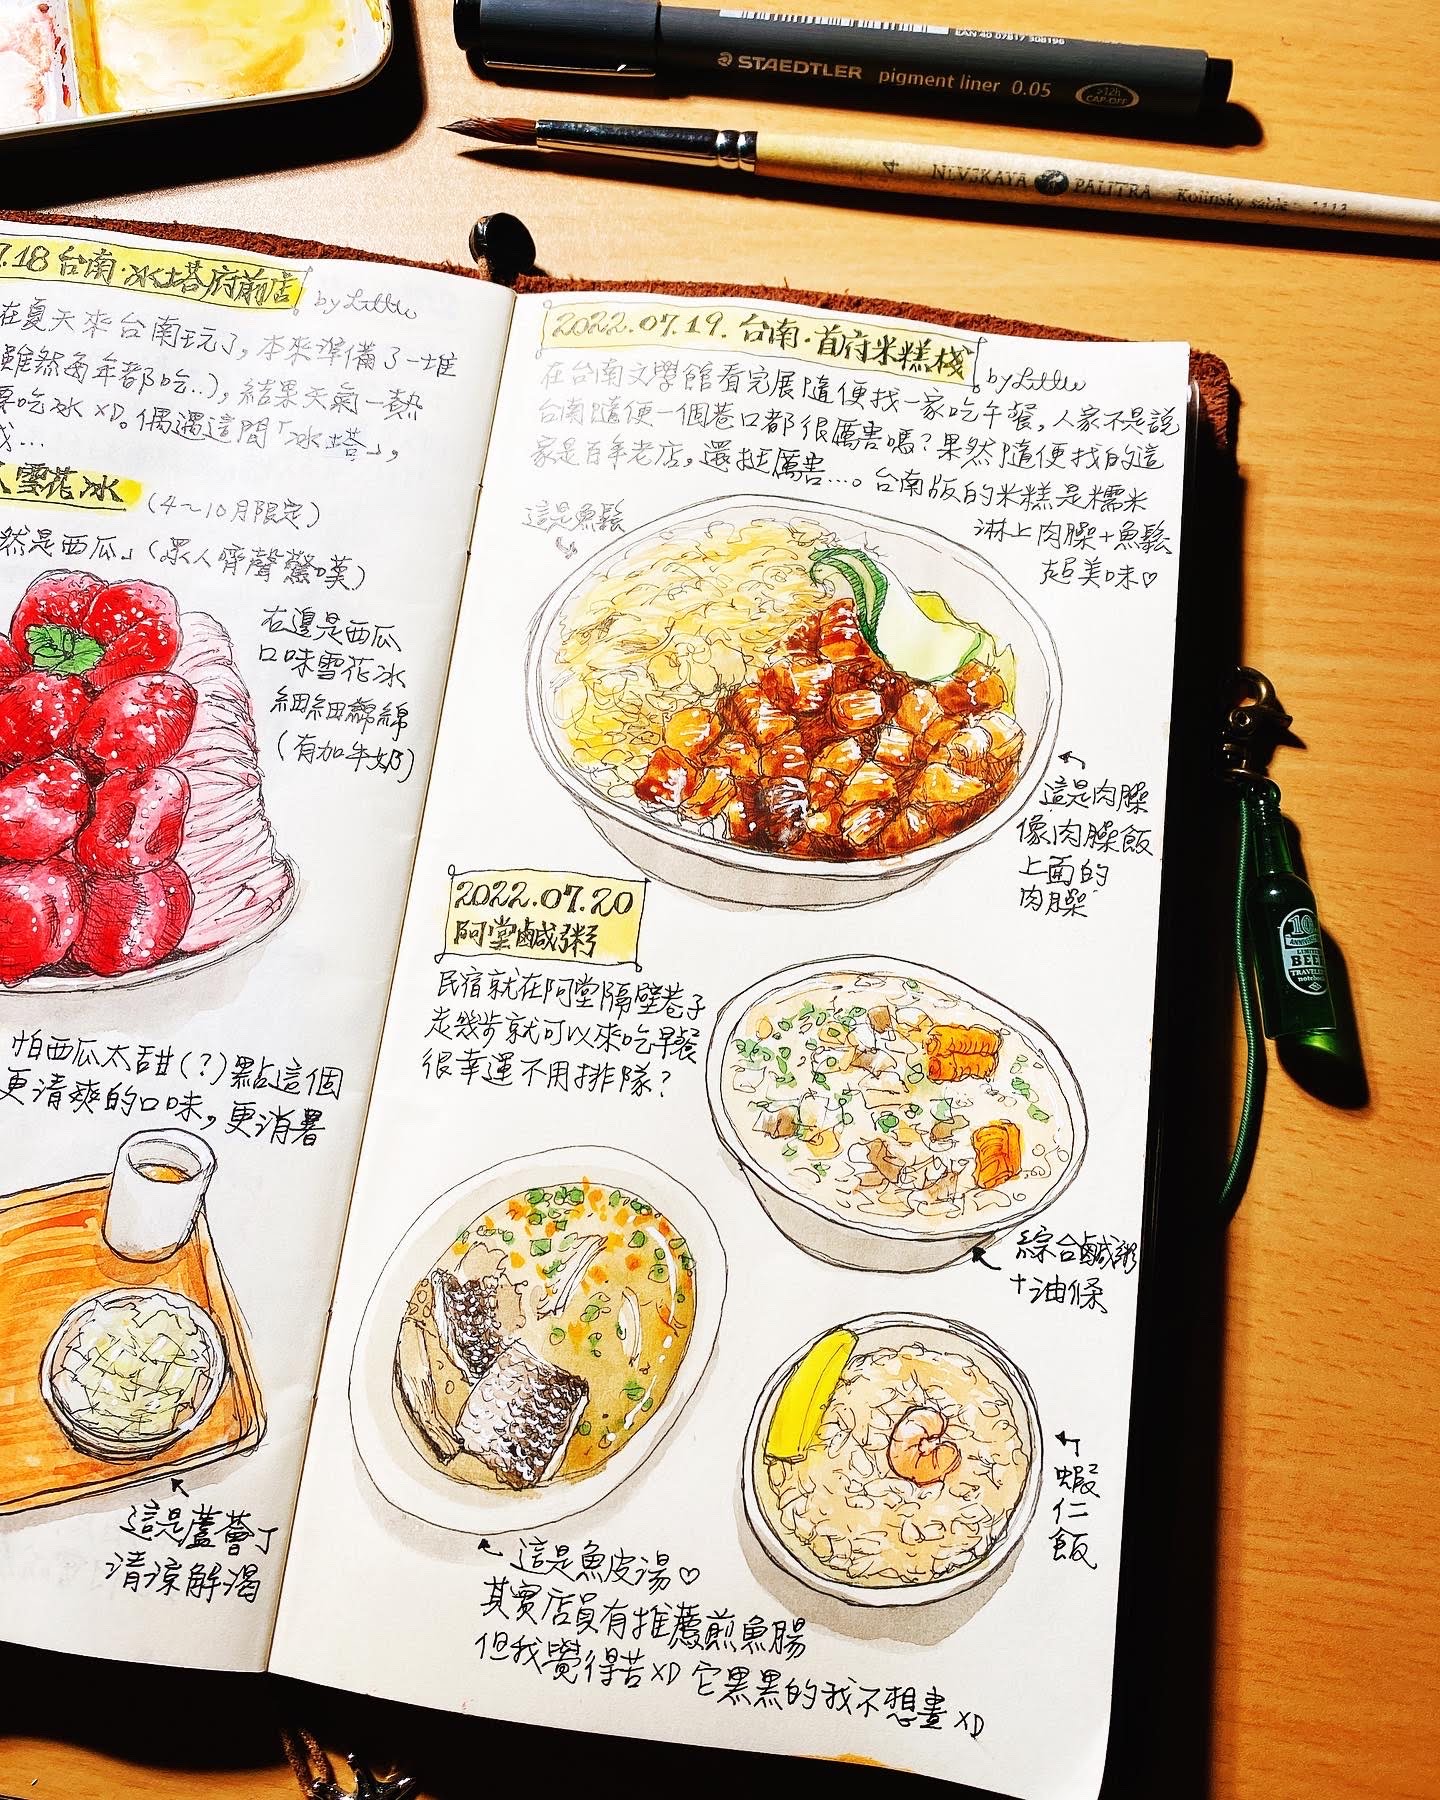 EAN 40 07817 308196
STAEDTLER pigment liner 0.05
>12h
CAP-OFF
4 NEVSKAYA PALITRA Kolinsky sable 1111
7.18 台南·冰塔府前店
by Little
在夏天來台南玩了,本來準備了一堆
雖然每年都吃…),結果天氣一熱
要吃冰XD。偶遇這間「冰塔」,
雪花冰
(4～10月限定)
然是西瓜」(眾人齊聲驚嘆)
右邊是西瓜
口味雪花冰
細細綿綿
(有加牛奶)
怕西瓜太甜(?)點這個
更清爽的口味,更消暑
這是蘆薈丁
清涼解渴
2022.07.19.台南·首府米糕棧
by Little
在台南文學館看完展隨便找一家吃午餐,人家不是說
台南隨便一個巷口都很厲害嗎?果然隨便找的這
家是百年老店,還挺厲害…。台南版的米糕是糯米
淋上肉臊+魚鬆
超美味♡
這是魚鬆
這是肉臊
像肉臊飯
上面的
肉臊
2022.07.20
阿堂鹹粥
民宿就在阿堂隔壁巷子
走幾步就可以來吃早餐
很幸運不用排隊?
綜合鹹粥
+油條
這是魚皮湯♡
其實店員有推薦煎魚腸
但我覺得苦XD 它黑黑的我不想畫XD
蝦
仁
飯
10
ANNIVERSARY
LIMITED
BEER
TRAVELER'S
notebook